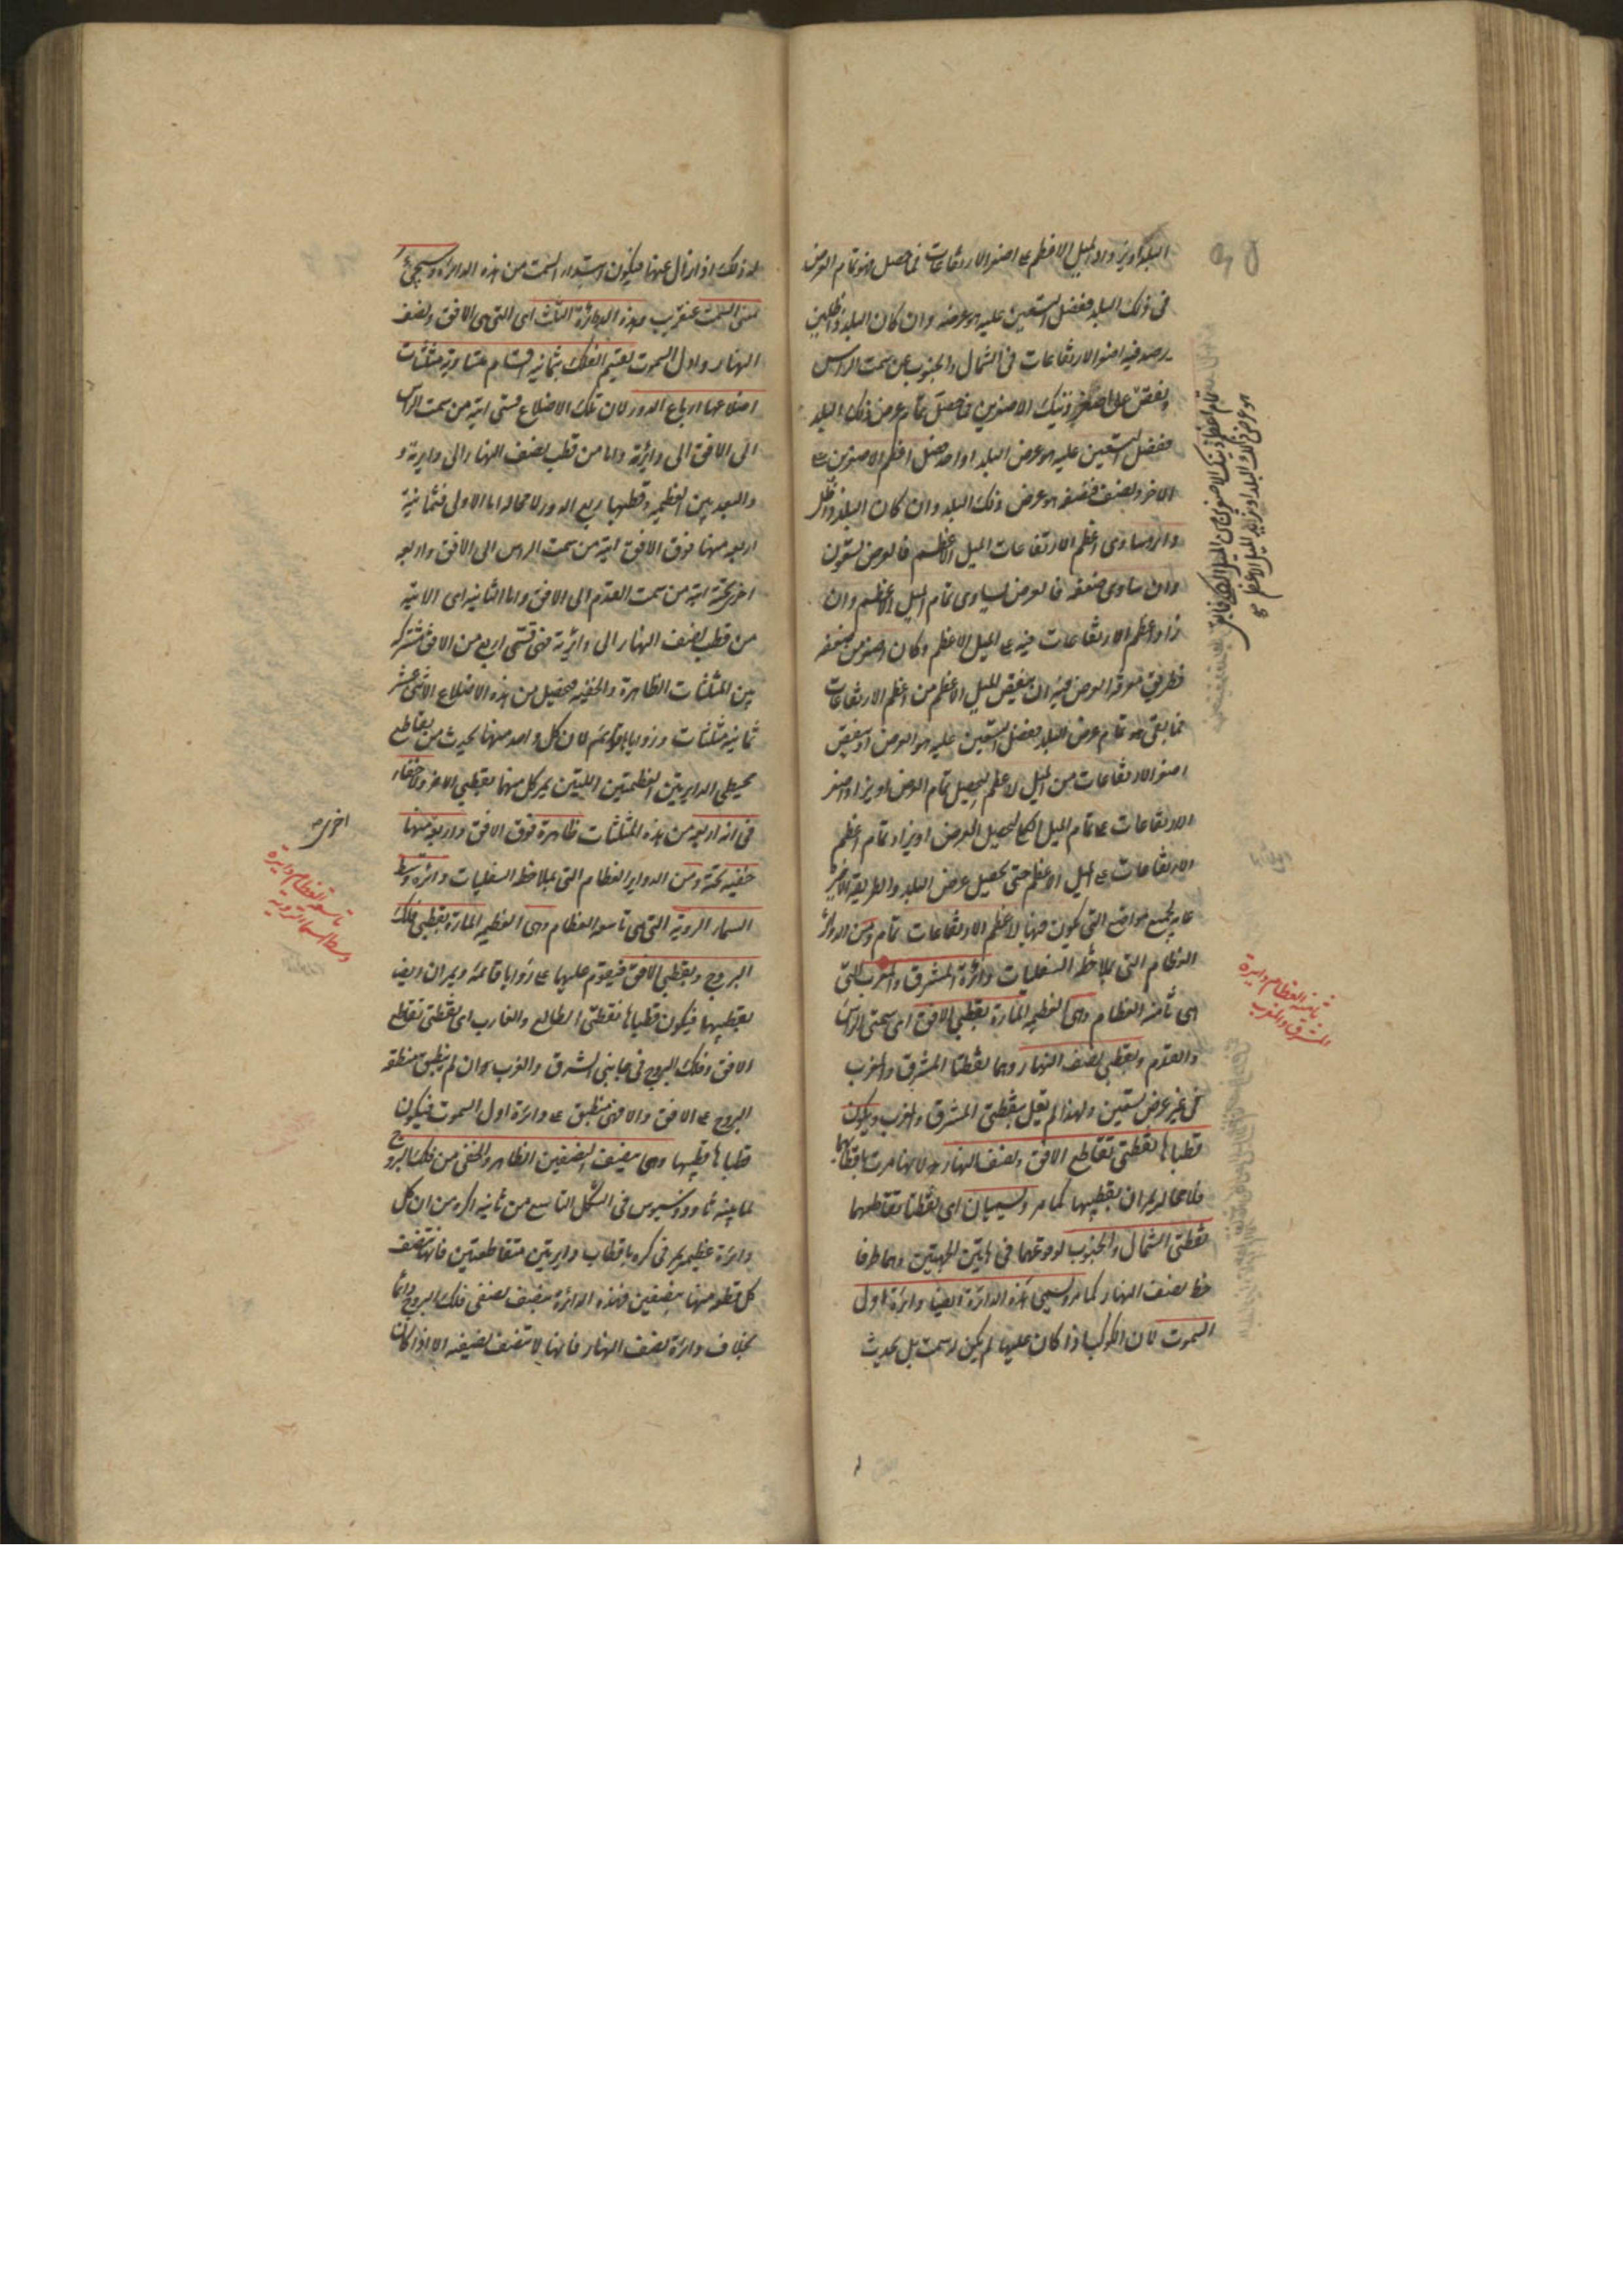 البلد او يزاد الميل الاعظم على اصغر الارتفاعات فما حصل فهو تمام العرض
فى ذلك البلد ففضل التسعين عليه هو عرضه وان كان البلد ذا ظلين
يرصد فيه اصغر الارتفاعات فى الشمال والجنوب عن سمت الراس
ذينك الاصغرين فما حصل تمام عرض ذلك البلد
ففضل التسعين عليه هو عرض البلد او اخذ فضل اعظم الاصغرين على
الاخر ونصف فنصفه هو عرض ذلك البلد وان كان البلد ذا ظل
دائر ساوى اعظم الارتفاعات الميل الاعظم فالعرض تسعون
وان ساوى ضعفه فالعرض يساوى تمام الميل الاعظم وان
زاد اعظم الارتفاعات فيه على الميل الاعظم وكان اصغر من ضعفه
فطريق معرفة العرض فيه ان ينقص الميل الاعظم من اعظم الارتفاعات
فما بقى فهو تمام عرض البلد ففضل التسعين عليه هو العرض او ينقص
اصغر الارتفاعات من الميل الاعظم ليحصل تمام العرض او يزاد اصغر
الارتفاعات على تمام الميل الكلى ليحصل العرض او يزاد تمام اعظم
الارتفاعات على الميل الاعظم حتى يحصل عرض البلد والطريقة الاخيرة
عامة لجميع مواضع التى يكون فيها لاعظم الارتفاعات تمام ومن الدوائر
العظام التى بملاحظة السفليات دائرة المشرق والمغرب التى
هى ثامنة العظام وهى العظيمة المارة بقطبى الافق اى سمتى الراس
والقدم وبقطبى نصف النهار وهما نقطتا المشرق والمغرب
فى غير عرض تسعين ولهذا لم يقل بنقطتى المشرق والمغرب ويكون
قطباها نقطتى تقاطع الافق ونصف النهار لانها مرت باقطابهما
فلا محالة يمران بقطبيها كما مر ويسميان اى نقطتا تقاطعهما
نقطتى الشمال والجنوب لوقوعهما فى هاتين الجهتين وهما طرفا
خط نصف النهار كما مر ويسمى هذه الدائرة ايضا دائرة اول
السموت لان الكوكب اذا كان عليها لم يكن له سمت بل يحدث
ثامنة العظام دايرة
المشرق والمغرب
له ذلك اذا زال عنها فيكون ابتداء السمت من هذه الدائرة وسيجئ
معنى السمت عنقريب وهذه الدوائر الثلث اى التى هى الافق ونصف
النهار واول السموت يقسم الفلك بثمانية اقسام متساوية مثلثات
اضلاعها ارباع الدور لان تلك الاضلاع فهى اتية من سمت الراس
الى الافق الى دايرته واما من قطب نصف النهار الى دايرته و
والبعد بين العظيمة وقطبها ربع الدور لا محالة اما الاولى فثمانية
اربعة منها فوق الافق اتية من سمت الراس الى الافق واربعة
اخرى تحته اتية من سمت القدم الى الافق واما الثانية اى الاتية
من قطب نصف النهار الى دائرته فهى قسى اربع من الافق مشتركة
بين المثلثات الظاهرة والخفية فيحصل من هذه الاضلاع الاثنى عشر
ثمانية مثلثات وزواياها قوائم لان كل واحد منها يحدث من تقاطع
محيطى الدايرتين العظيمتين اللتين يمر كل منهما بقطبى الاخر ولا خفاء
فى انه اربعة من هذه المثلثات ظاهرة فوق الافق واربعة منها
خفية تحته ومن الدواير العظام التى بملاحظة السفليات دائرة وسط
السماء الروية التى هى تاسعة العظام وهى العظيمة المارة بقطبى فلك
البروج وبقطبى الافق فيقوم عليهما على زوايا قائمة ويمران ايضا
بقطبيها فيكون قطباها نقطتى الطالع والغارب اى نقطتى تقاطع
الافق وفلك البروج فى جانبى الشرق والغرب وان لم ينطبق منطقة
البروج على الافق والا فهى ينطبق على دائرة اول السموت فيكون
قطباها قطبيها وهى ينصف النصفين الظاهر والخفى من فلك البروج
لما بينه ثاودوسيوس فى الشكل التاسع من ثانية اكره من ان كل
دائرة عظيمة يمر فى كرة باقطاب دايرتين متقاطعتين فانها ينصف
كل قطعة منها بنصفين فهذه الدائرة ينصف نصفى فلك البروج دائما
بخلاف دائرة نصف النهار فانها لا تنصف نصفيه الا اذا كان
اخرى
تاسعة العظام دايرة
وسط السماء الروية